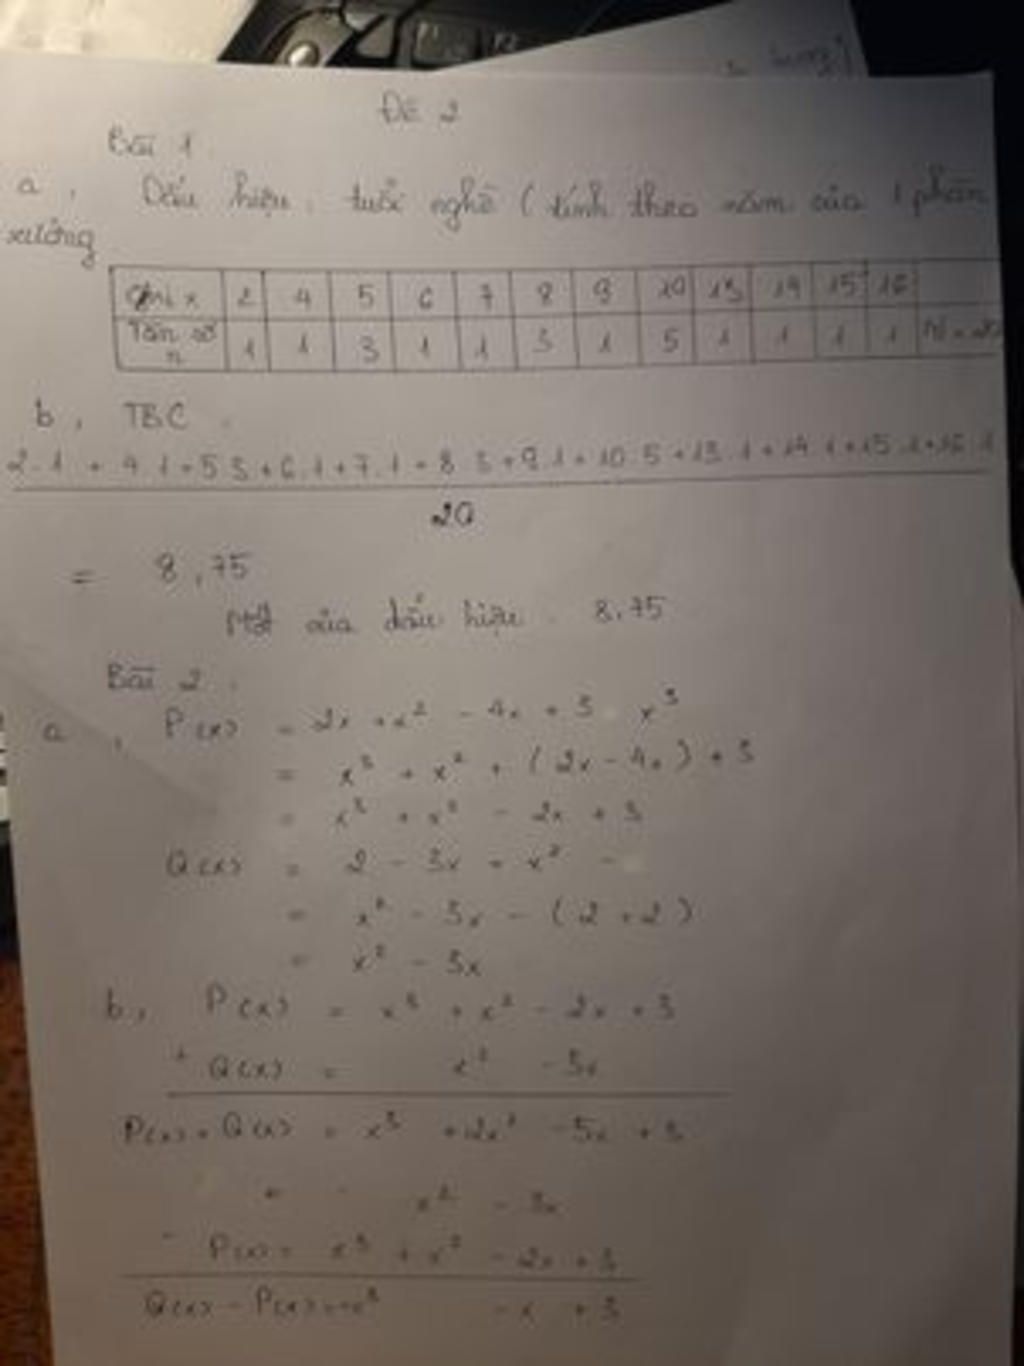 Đề 2
Bài 1
a, Dấu hiệu: tuổi nghề (tính theo năm của 1 phân
xưởng
x 2 4 5 6 7 8 9 10 13 14 15 16
Tần số n 1 1 3 1 1 3 1 5 1 1 1 1
b, TBC:
2.1 + 4.1+5.3+6.1+7.1+8.3+9.1+10.5+13.1+14.1+15.1+16.1
20
= 8,75
Mốt của dấu hiệu: 8,75
Bài 2:
a, P(x) = 2x + x² - 4x + 3 x³
= x³ + x² + (2x - 4x) + 3
= x³ + x² - 2x + 3
Q(x) = 2 - 3x + x² -
= x² - 3x - (2 + 2)
= x² - 3x
b, P(x) = x³ + x² - 2x + 3
+ Q(x) = x² - 3x
P(x) + Q(x) = x³ + 2x² - 5x + 3
x² - 3x
- P(x) = x³ + x² - 2x + 3
Q(x) - P(x) = -x³ - x + 3